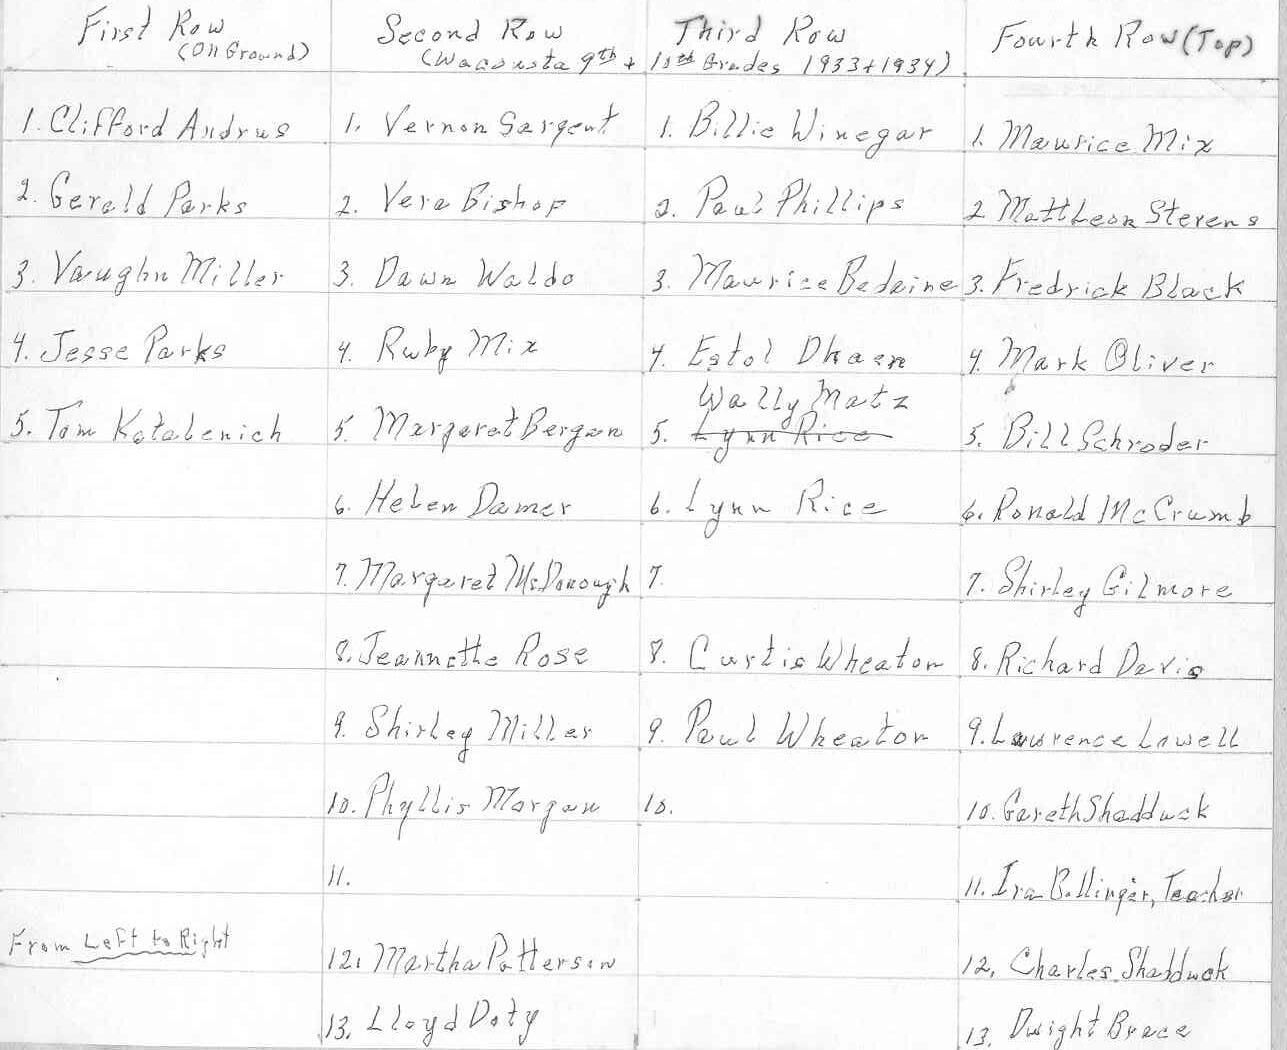 First Row
(On Ground)
1. Clifford Andrus
2. Gerald Parks
3. Vaughn Miller
4. Jesse Parks
5. Tom Katalenich
From Left to Right
Second Row
(Wacousta 9th + 10th Grades 1933+1934)
1. Vernon Sargent
2. Vera Bishop
3. Dawn Waldo
4. Ruby Mix
5. Margaret Bergan
6. Helen Damer
7. Margaret McDonough
8. Jeannette Rose
9. Shirley Miller
10. Phyllis Morgan
11.
12. Martha Patterson
13. Lloyd Doty
Third Row
1. Billie Winegar
2. Paul Phillips
3. Maurice Bedaine
4. Estol Dhaen
Wally Matz
5. Lynn Rice
6. Lynn Rice
7.
8. Curtis Wheaton
9. Paul Wheaton
10.
Fourth Row (Top)
1. Maurice Mix
2 Matt Leon Stevens
3. Fredrick Black
4. Mark Oliver
5. Bill Schroder
6. Ronald McCrumb
7. Shirley Gilmore
8. Richard Davis
9. Lawrence Lowell
10. Gareth Shadduck
11. Ira Bollinger, Teacher
12, Charles Shadduck
13. Dwight Brace